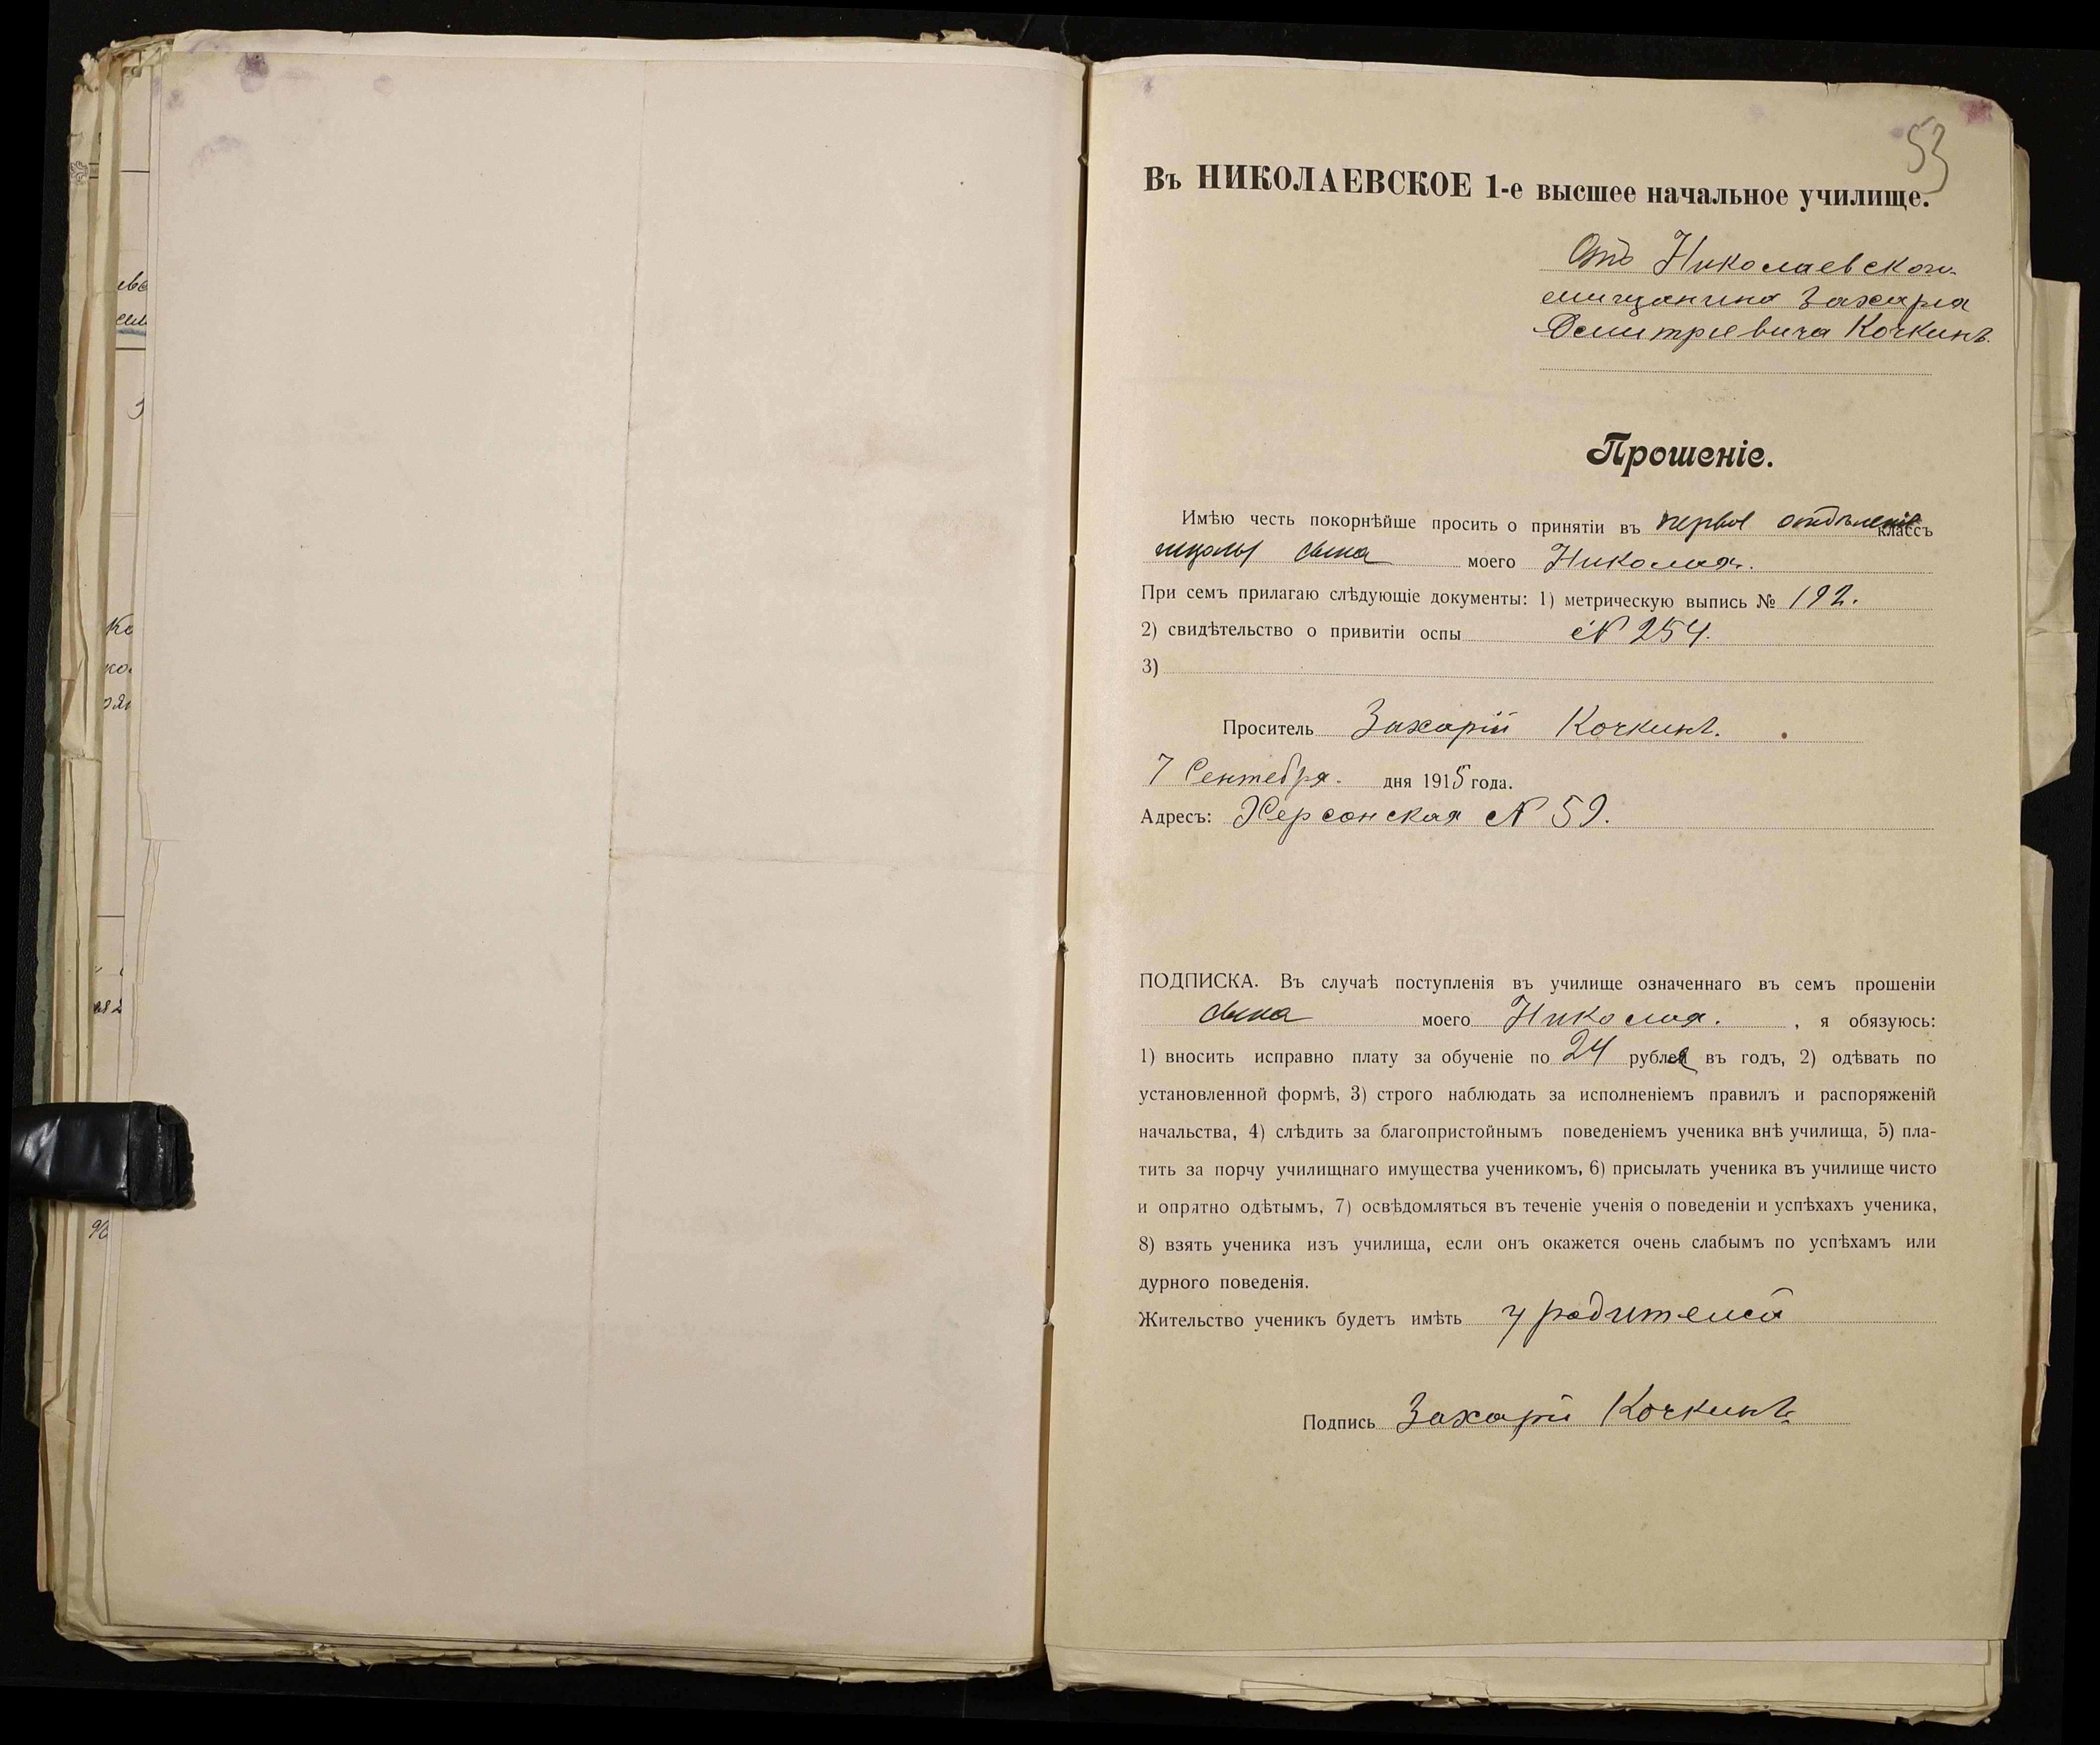 53
Въ НИКОЛАЕВСКОЕ 1-е высшее начальное училище.
Отъ Николаевскаго
мищанина Захарія
Дмитріевича Кочкинъ.
Прошеніе.
Имѣю честь покорнѣйше просить о принятіи въ первое отдѣленіе классъ
школы сына моего Николая.
При семъ прилагаю слѣдующіе документы: 1) метрическую выпись № 192.
2) свидѣтельство о привитіи оспы № 254.
3)
Проситель Захарій Кочкинъ.
7 Сентебря. дня 1915 года.
Адресъ: Херсонская № 59.
ПОДПИСКА. Въ случаѣ поступленія въ училище означеннаго въ семъ прошеніи
сына моего Николая. , я обязуюсь:
1) вносить исправно плату за обученіе по 24 рублей въ годъ, 2) одѣвать по
установленной формѣ, 3) строго наблюдать за исполненіемъ правилъ и распоряженій
начальства, 4) слѣдить за благопристойнымъ поведеніемъ ученика внѣ училища, 5) пла-
тить за порчу училищнаго имущества ученикомъ, 6) присылать ученика въ училище чисто
и опрятно одѣтымъ, 7) освѣдомляться въ теченіе ученія о поведеніи и успѣхахъ ученика,
8) взять ученика изъ училища, если онъ окажется очень слабымъ по успѣхамъ или
дурного поведенія.
Жительство ученикъ будетъ имѣть у родителей
Подпись Захарій Кочкинъ